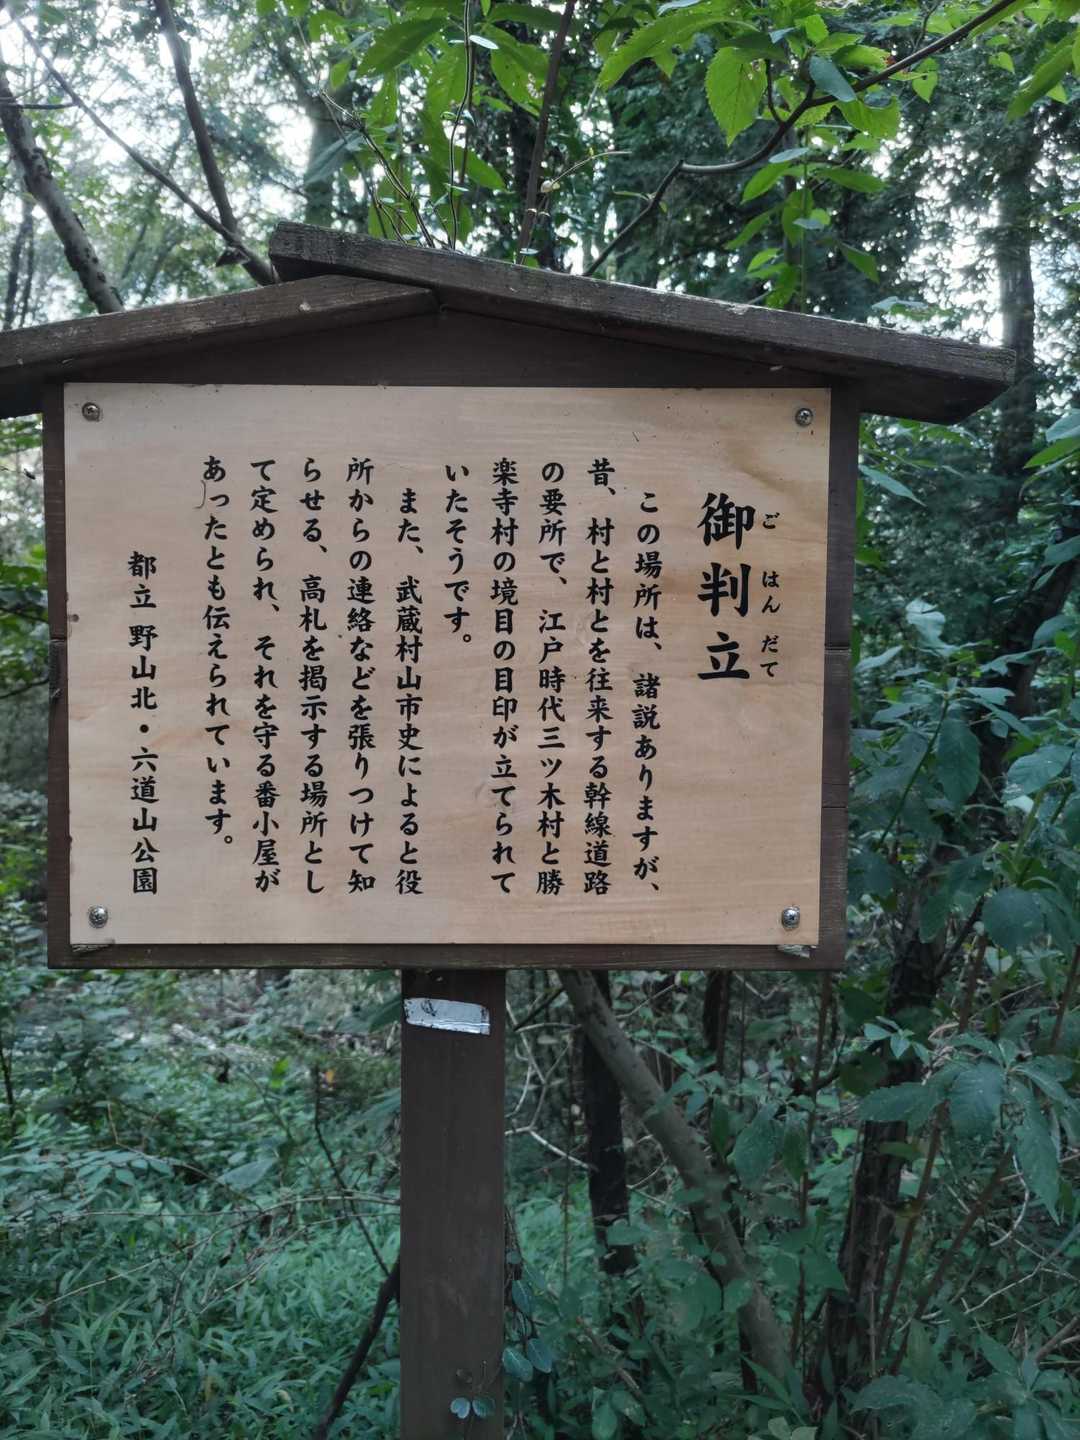 御判立
ごはんだて
この場所は、諸説ありますが、
昔、村と村とを往来する幹線道路
の要所で、江戸時代三ツ木村と勝
楽寺村の境目の目印が立てられて
いたそうです。
また、武蔵村山市史によると役
所からの連絡などを張りつけて知
らせる、高札を掲示する場所とし
て定められ、それを守る番小屋が
あったとも伝えられています。
都立野山北・六道山公園